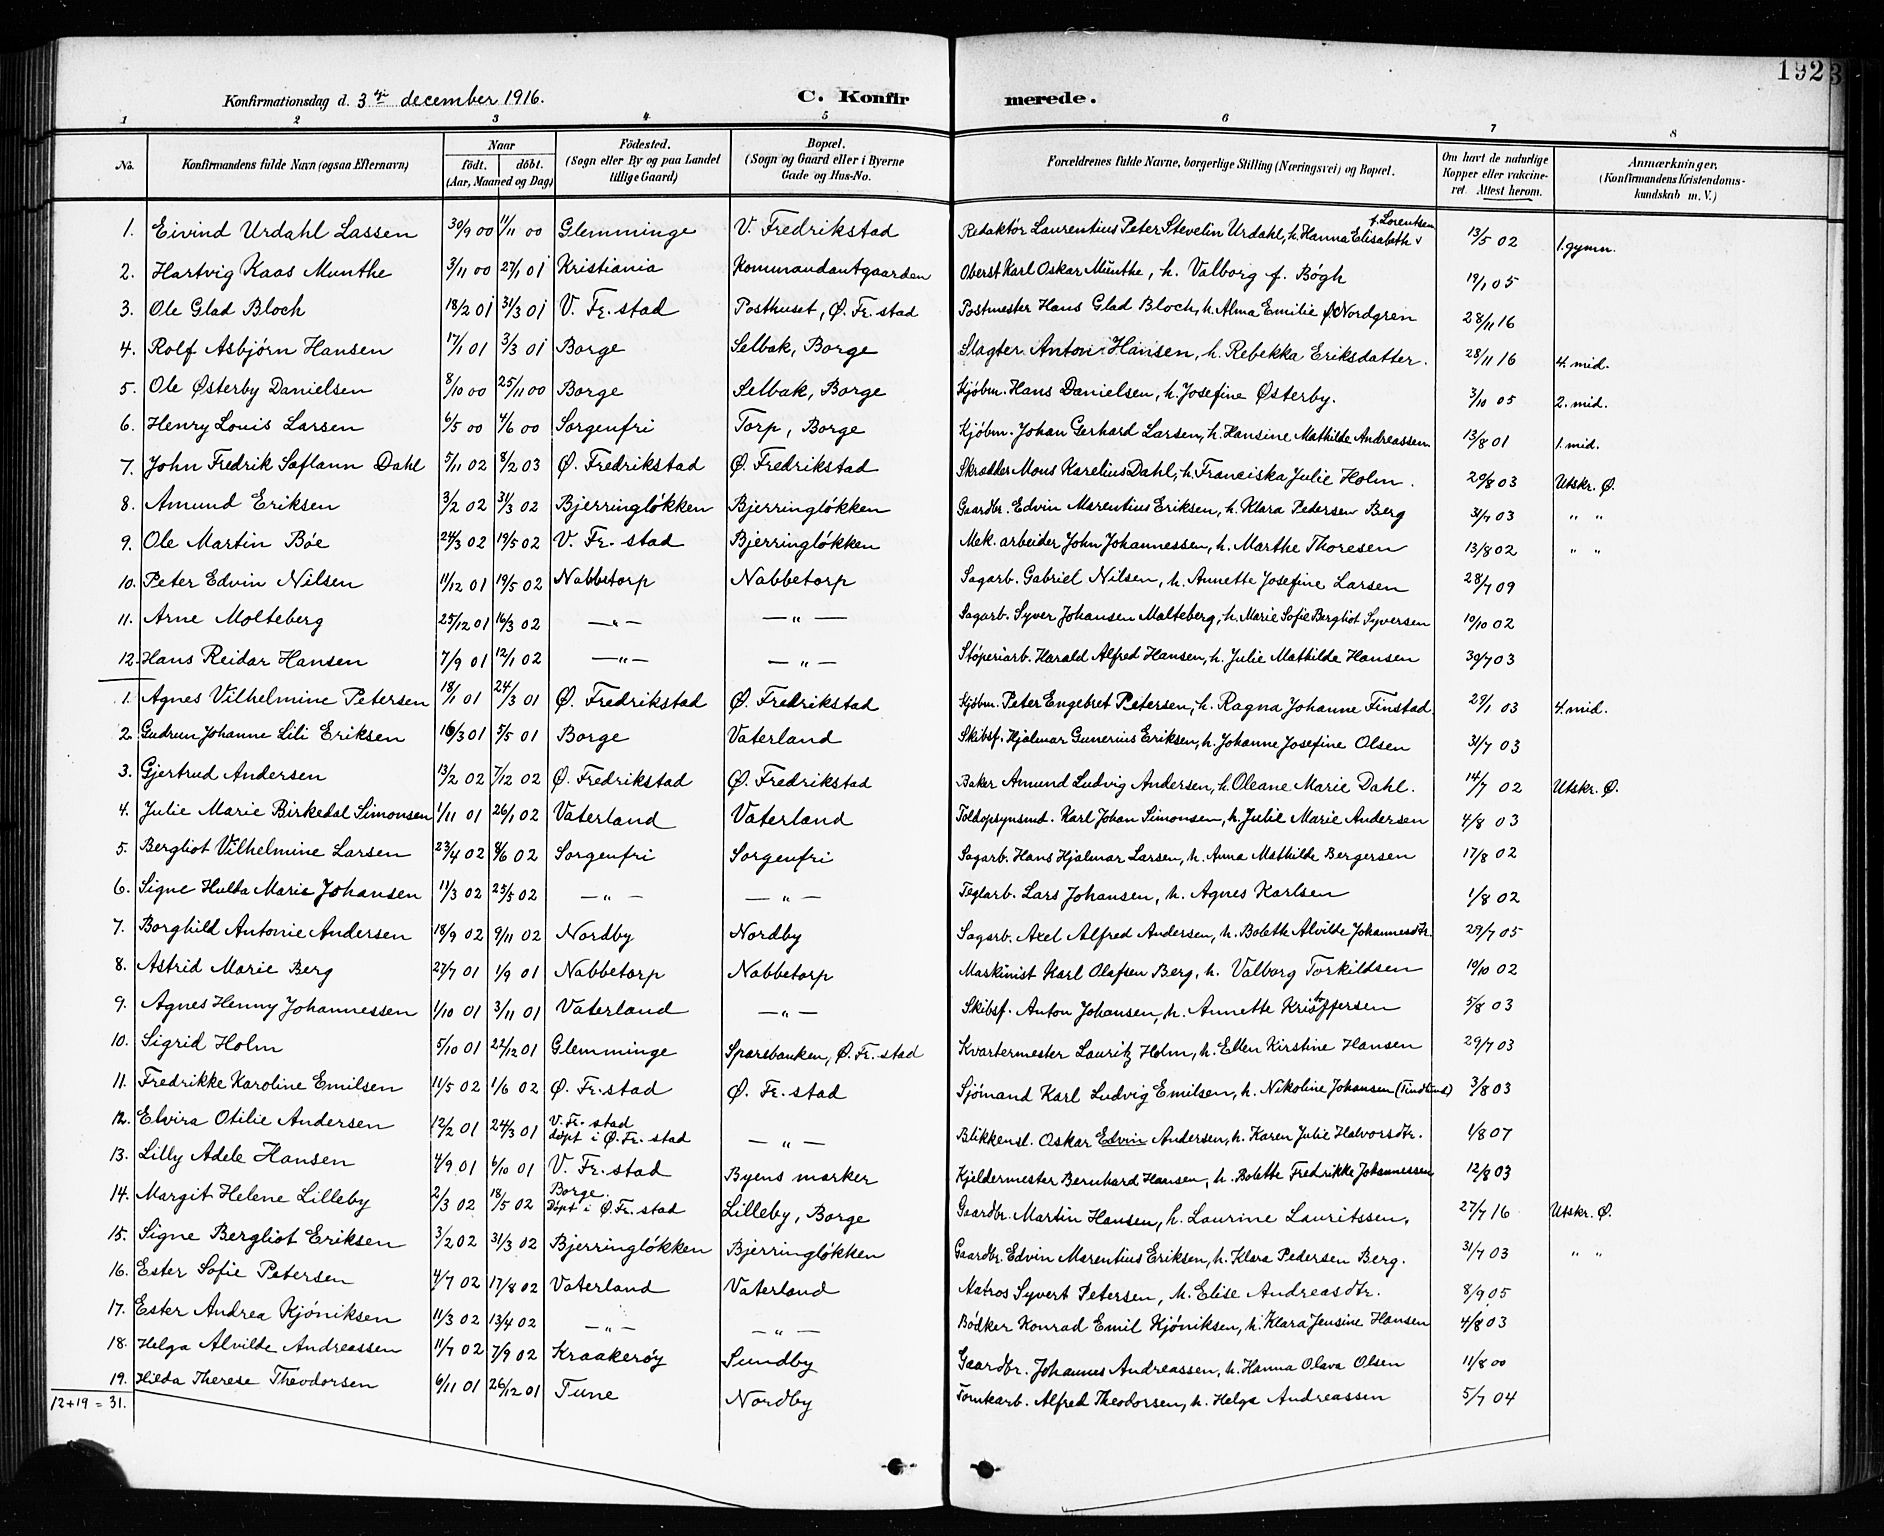 192
3
Konfirmationsdag d. 3die december 1916.
C. Konfirmerede.
1 2 3 4 5 6 7 8
No. Konfirmandens fulde Navn (ogsaa Efternavn) Naar født. døbt. (Aar, Maaned og Dag) Födested. (Sogn eller By og paa Landet tillige Gaard) Bopæl. (Sogn og Gaard eller i Byerne Gade og Hus-No. Forældrenes fulde Navne, borgerlige Stilling (Næringsvei) og Bopæl. Om havt de naturlige Kopper eller vakcineret. Attest herom. Anmærkninger, (Konfirmandens Kristendomskundskab m. V.)
1. Eivind Urdahl Lassen 30/9 00 11/11 00 Glemminge V. Fredrikstad Redaktør Laurentius Peter Stevelin Urdahl, h. Hanna Elisabeth f. Lorentsen 13/5 02 1. gymn.
2. Hartvig Kaas Munthe 3/11 00 27/1 01 Kristiania Kommandantgaarden Oberst Karl Oskar Munthe, h. Valborg f. Bøgh 19/1 05
3. Ole Glad Bloch 18/2 01 31/3 01 V. Fr. stad Posthuset, Ø. Fr. stad Postmester Hans Glad Bloch, h. Alma Emilie Nordgren 28/11 16
4. Rolf Asbjørn Hansen 17/1 01 3/3 01 Borge Selbak, Borge Slagter Anton Hansen, h. Rebekka Eriksdatter. 28/11 16 4. mid.
5. Ole Østerby Danielsen 8/10 00 25/11 00 Borge Selbak, Borge Kjøbm. Hans Danielsen, h. Josefine Østerby. 3/10 05 2. mid.
6. Henry Louis Larsen 6/5 00 4/6 00 Sorgenfri Torp, Borge Kjøbm. Johan Gerhard Larsen, h. Hansine Mathilde Andreassen 13/8 01 1. mid.
7. John Fredrik Saflann Dahl 5/11 02 8/2 03 Ø. Fredrikstad Ø. Fredrikstad Skrædder Mons Karelius Dahl, h. Franciska Julie Holm. 20/8 03 Utskr. Ø.
8. Amund Eriksen 3/2 02 31/3 02 Bjerringløkken Bjerringløkken Gaardbr. Edvin Marentius Eriksen, h. Klara Pedersen Berg 31/7 03 " "
9. Ole Martin Bøe 24/3 02 19/5 02 V. Fr. stad Bjerringløkken Mek. arbeider John Johannessen, h. Marthe Thoresen 13/8 02 " "
10. Peter Edvin Nilsen 11/12 01 19/5 02 Nabbetorp Nabbetorp Sagarb. Gabriel Nilsen, h. Annette Josefine Larsen 28/7 09
11. Arne Molteberg 25/12 01 16/3 02 — " — — " — Sagarb. Syver Johansen Molteberg, h. Marie Sofie Bergliot Syversen 10/10 02
12. Hans Reidar Hansen 7/9 01 12/1 02 — " — — " — Støperiarb. Harald Alfred Hansen, h. Julie Mathilde Hansen 30/7 03
1. Agnes Vilhelmine Petersen 18/1 01 24/3 01 Ø. Fredrikstad Ø. Fredrikstad Kjøbm. Peter Engebret Petersen, h. Ragna Johanne Finstad. 29/1 03 4. mid.
2. Gudrun Johanne Lili Eriksen 16/3 01 5/5 01 Borge Vaterland Skibsf. Hjalmar Gunerius Eriksen, h. Johanne Josefine Olsen 31/7 03
3. Gjertrud Andersen 13/2 02 7/12 02 Ø. Fredrikstad Ø. Fredrikstad Baker Amund Ludvig Andersen, h. Oleane Marie Dahl. 14/7 02 Utskr. Ø.
4. Julie Marie Birkedal Simonsen 1/11 01 26/1 02 Vaterland Vaterland Toldopsynsmd. Karl Johan Simonsen, h. Julie Marie Andersen 4/8 03
5. Bergliot Vilhelmine Larsen 23/4 02 8/6 02 Sorgenfri Sorgenfri Sagarb. Hans Hjalmar Larsen, h. Anna Mathilde Bergersen 17/8 02
6. Signe Hulda Marie Johansen 11/3 02 25/5 02 — " — — " — Teglarb. Lars Johansen, h. Agnes Karlsen 1/8 02
7. Borghild Antonie Andersen 18/9 02 9/11 02 Nordby Nordby Sagarb. Axel Alfred Andersen, h. Bolette Alvilde Johannesdtr. 29/7 05
8. Astrid Marie Berg 27/7 01 1/9 01 Nabbetorp Nabbetorp Maskinist Karl Olafsen Berg, h. Valborg Torkildsen 10/10 02
9. Agnes Henny Johannessen 1/10 01 3/11 01 Vaterland — " — Skibsf. Anton Johansen, h. Annette Kristoffersen 5/8 03
10. Sigrid Holm 5/10 01 22/12 01 Glemminge Sparebanken, Ø. Fr. stad Kvartermester Lauritz Holm, h. Ellen Kirstine Hansen 29/7 03
11. Fredrikke Karoline Emilsen 11/5 02 1/6 02 Ø. Fr. stad Ø. Fr. stad Sjømand Karl Ludvig Emilsen, h. Nikoline Johansen (Tindlund) 3/8 03
12. Elvira Otilie Andersen 12/2 01 24/3 01 V. Fr. stad døpt i Ø. Fr. stad — " — Blikkensl. Oskar Edvin Andersen, h. Karen Julie Halvorsdtr. 1/8 07
13. Lilly Adele Hansen 4/9 01 6/10 01 V. Fr. stad Byens marker Kjeldermester Bernhard Hansen, h. Bolette Fredrikke Johannessen 12/8 03
14. Margit Helene Lilleby 2/3 02 18/5 02 Borge. Døpt i Ø. Fr. stad Lilleby, Borge Gaardbr. Martin Hansen, h. Laurine Lauritssen. 27/7 16 Utskr. Ø.
15. Signe Bergliot Eriksen 3/2 02 31/3 02 Bjerringløkken Bjerringløkken Gaardbr. Edvin Marentius Eriksen, h. Klara Pedersen Berg. 31/7 03 " "
16. Ester Sofie Petersen 4/7 02 17/8 02 Vaterland Vaterland Matros Syvert Petersen, h. Elise Andreasdtr. 8/9 05
17. Ester Andrea Kjøniksen 11/3 02 13/4 02 — " — — " — Bødker Konrad Emil Kjøniksen, h. Klara Jensine Hansen 4/8 03
18. Helga Alvilde Andreassen 11/7 02 7/9 02 Kraakerøy Sundby Gaardbr. Johannes Andreassen, h. Hanna Olava Olsen 11/8 00
19. Hilda Therese Theodorsen 6/11 01 26/12 01 Tune Nordby Tomtearb. Alfred Theodorsen, h. Helga Andreassen 5/7 04
12 + 19 = 31.